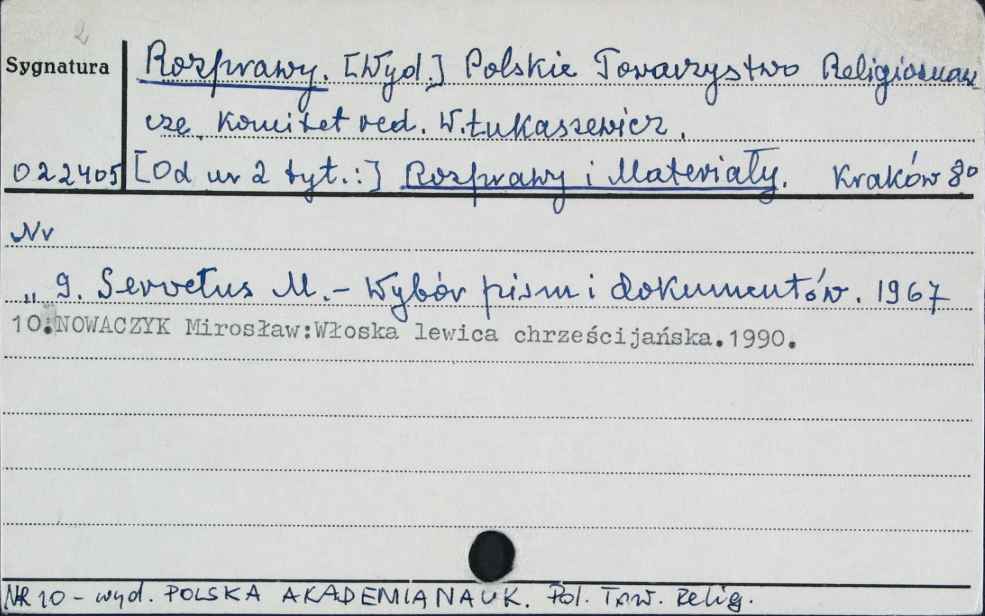 2
Sygnatura
Rozprawy. [Wyd.] Polskie Towarzystwo Religioznaw
cze. Komitet red. W. Łukaszewicz.
022405 [Od nr 2 tyt.:] Rozprawy i Materiały. Kraków 8°
Nr
„ 9. Servetus M. – Wybór pism i dokumentów. 1967
10.NOWACZYK Mirosław:Włoska lewica chrześcijańska.1990.
NR 10 – wyd. POLSKA AKADEMIA NAUK. Pol. Tow. Relig.